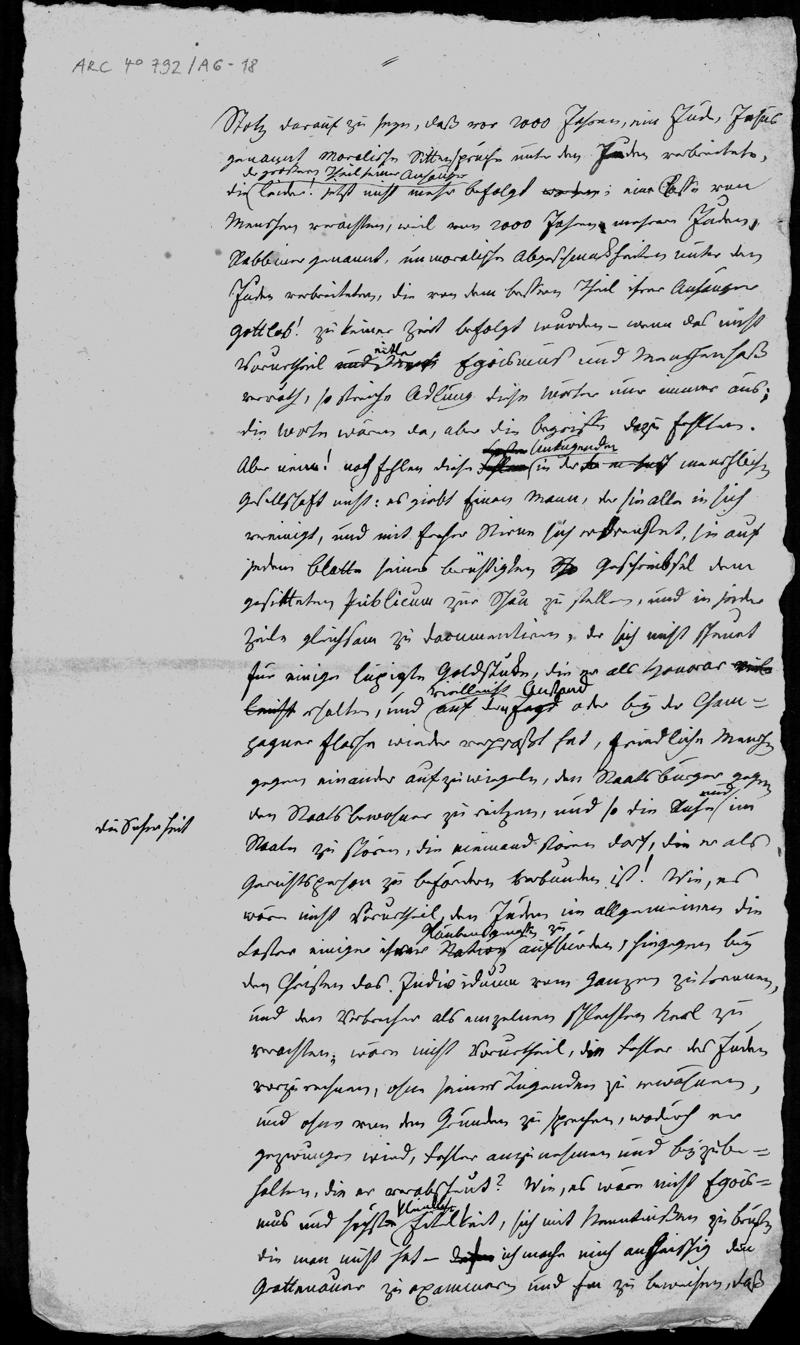 ARC 4° 792/A6-18
Stolz darauf zu seyn, daß vor 2000 Jahren, ein Jude, Jesus
genannt moralische Sittensprüche unter den Juden verbreitete,
der größere Theil seiner Anhänger
die leider! jetzt nicht mehr befolgt werden; eine Classe von
Menschen verachten, weil vor 2000 Jahren mehrere Juden,
Rabbiner genannt, unmoralische Abgeschmaktheiten unter den
Juden verbreiteten, die von dem bessern Theil ihrer Anhänger
gottlob! zu keiner Zeit befolgt wurden – wenn das nicht
Vorurtheil und Egoismus und Menschenhaß
verräth, so streiche Adlung diese Wörter nur immer aus;
die Worte wären da, aber die Begriffe dazu fehlten.
Untugenden
Aber nein! noch fehlen diese in der menschlichen
Gesellschaft nicht: es giebt Einen Mann, der sie alle in sich
vereinigt, und mit frecher Stirne sich erdreustet, sie auf
jedem Blatte seines berüchtigten Geschreibsel dem
gesitteten Publicum zur Schau zu stellen, und in jeder
Zeile gleichsam zu documentiren, der sich nicht scheuet
für einige lumpigte Goldstüke, die er als Honorar
vielleicht
erhalten, und auf oder bey der Cham=
pagner Flasche wieder verpraßt hat, friedliche Menschen
gegen einander aufzuwiegeln, den Staatsbürger gegen
den Staatsbewohner zu reitzen, und so die Ruhe und im
die Sicherheit
Staate zu stören, die niemand stören darf, die er als
Gerichtsperson zu befördern verbunden ist! Wie, es
wäre nicht Vorurtheil, den Juden im allgemeinen die
Glaubensgenossen zu
Laster einiger ihrer Nation aufbürden, hingegen bey
den Christen das Individuum vom Ganzen zu trennen,
und den Verbrecher als einzelnen schlechten Kerl zu
verachten; wäre nicht Vorurtheil, die Fehler des Juden
vorzurechnen, ohne seiner Tugenden zu erwähnen,
und ohne von den Gründen zu sprechen, wodurch er
gezwungen wird, Fehler anzunehmen und beyzube=
halten, die er verabscheut? Wie, es wäre nicht Egois=
mus und höchste Eitelkeit, sich mit Kenntnißen zu brüsten
die man nicht hat – ich mache mich anheischig den
Grattenauer zu examiniren und zu beweisen, daß